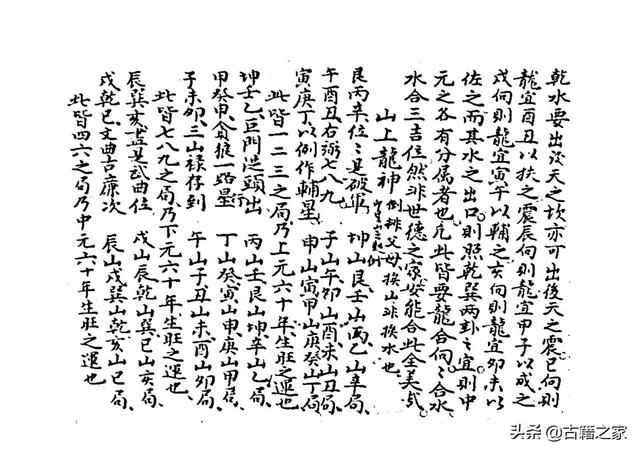 乾水要出後天之坎亦可出後天之震巳向則
龍宜酉丑以扶之震辰向則龍宜甲子以成之
戌向則龍宜寅午以輔之亥向則龍宜卯未以
佐之而其水之出口則照乾巽兩對之宜則中
元之各有分属者也凡此皆要龍合向向合水
水合三吉位然非世德之家安能合此全美哉
山上龍神 倒排父母挨山非挨水也
艮丙辛位位是破軍 坤山艮壬山丙乙山辛局
午酉丑右弼七八九 子山午卯山酉未山丑局
寅庚丁以例作輔星 申山寅甲山庚癸山丁局
此皆一二三之局乃上元六十年生旺之運也
坤壬乙巨門從頭出 丙山壬艮山坤辛山乙局
甲癸申貪狼一路行 丁山癸寅山申庚山甲局
子未卯三山禄存到 午山子丑山未酉山卯局
此皆七八九之局乃下元六十年生旺之運也
辰巽亥盡是武曲位 戌山辰乾山巽巳山亥局
戌乾巳文曲古廉次 辰山戌巽山乾亥山巳局
此皆四六之局乃中元六十年生旺之運也
头条 @古籍之家